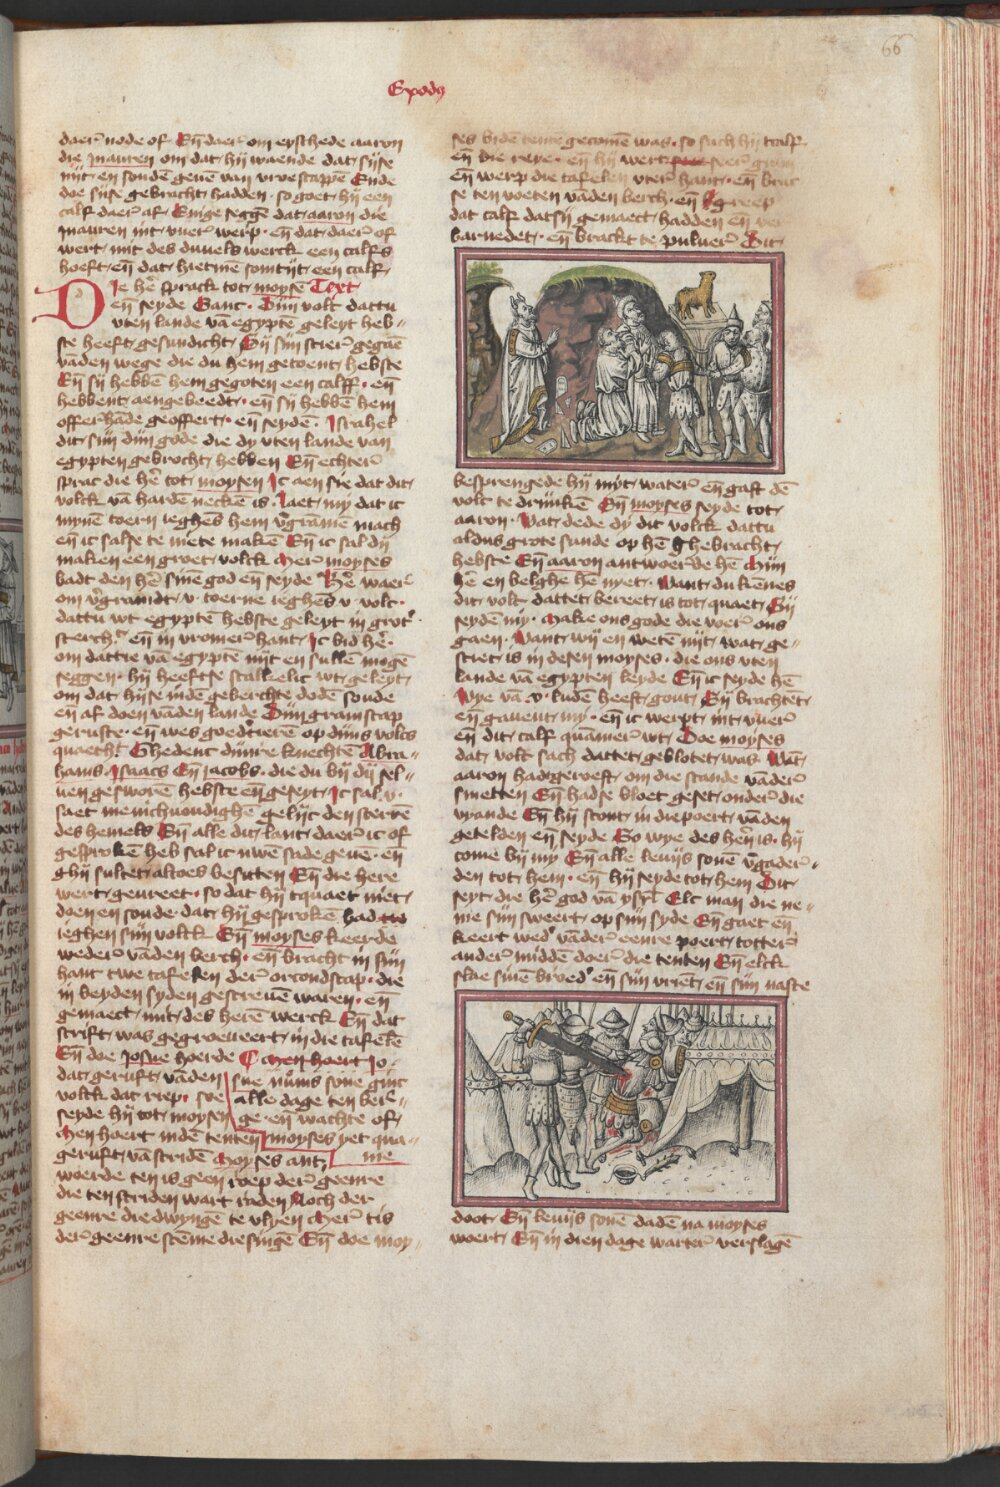 66
Exodus
daer̄ node of · En̄ daer̄ om eyschede aaron
die mauren om dat hij waende dat sijse
niit en sondē geuē van vrouescappē Ende
doe sijse gebracht hadden · so goet hij een
calf daer af · Enige seggē dat aaron die
mauren int vuer̄ werp · en̄ dat daer̄ of
wert mit des duuels werck een calfs
hoeft · en̄ dat hietmē somtijt een calf
Die hē sprack tot moysē Text
en̄ seyde Ganc · Dijn volt dattu
vten lande vā egyptē geleyt heb
ste heeft gesundicht · En̄ sijn scier gegaē
vāden wege die du hem getoent hebste
En̄ sij hebbē hem gegoten een calff · en̄
hebbent aengebeedt · en̄ sij hebbē hem
offerhāde geoffert · en̄ seyde · Israhel
dit sijn dijn gode die dy vten lande van
egypten gebrocht hebben En̄ echter̄
sprac die hē tot moysen Ic aen sie dat dit
volck vā hardē neckē is · Laet my dat ic
mynē toern ieghēs hem v̄gramē mach
en̄ ic salse te niete makē En̄ ic sal dij
maken een groet volck Mer̄ moyses
badt den hē sinē god en̄ seyde Hē waer̄
om v̄gramdt · v · toerne ieghēs · v · volt ·
dattu wt egyptē hebste geleyt in grot
sterch · en̄ in vromer̄ hant · Ic bid hē ·
om dattie vā egyptē niit en sullē mogē
seggen · hij heeftse scalkelic wt geleyt
om dat hijse indē geberchte dodē soude
en̄ af doen vāden lande Dijn gramscap
geruste · en̄ wes goedtierē op dijns volcs
quaecht Ghedenc dijnre knechtē Abra
hams · Isaacs En̄ Jacobs · die du bij dij sel
uen gesworē hebste en̄ geseyt · Ic sal · v ·
saet menichuoudighē gelijc den sterrē
des hemels En̄ alle dit lant daer̄ ic of
gesprokē heb sal ic uwē sade geuē · en̄
ghij sultet altoes besitten En̄ die here
wert geureet · so dat hij tquaet niet
doen en soude dat hij gesprokē had
ieghen sijn volck En̄ moyses keerde
weder̄ vāden berch · en̄ bracht in sijn
hant twe tafelen der orcondscap · die
in beyden syden gescreuē waren · en̄
gemaect mit des herē werck En̄ dat
scrift was gegroeueert in die tafelē
En̄ doe Josue hoerde C men hoert Jo
dat geruft vāden sue nums sone ginc
volck dat riep · soe alle dage ten ber
seyde hij tot moysen ge · en̄ wachte of
Men hoert indē tenten moyses yet qua
geruft vā stridē Moyses ant me
woerde ten is geen roep der geenre
die ten striden wart raden Noch der
geenre die dwyngē te vlyen Mer̄ tis
der̄ geenre stēme die singē En̄ doe moy
ses bidē tentē gecomē was · so sach hij tcalf
en̄ die reye · en̄ hij wert seer̄ gram
en̄ werp die tafelen vter̄ hant · en̄ brac
se ten voeten vāden berch · en̄ greep
dat calf datsij gemaect hadden en̄ ver
barnedet · en̄ brackt te puluer̄ Dit
besprengede hij mijt water̄ en̄ gaft dē
volt te drijnkē En̄ moyses seyde tot
aaron · Wat dede dy dit volck dattu
aldus grote sunde op hē ghebracht
hebste En̄ aaron antwoer̄de hē Mijn
hē en belghe hē nyet · Want du kēnes
dit volt dattet bereet is tot quaet · Sij
seydē my · Make ons gode die voer̄ ons
gaen · Want wij en wetē niit wat ge
sciet is in desen moyses · die ons vten
lande vā egypten leyde En̄ ic seyde hē
Wye vā · v · ludē heeft gout · En̄ brachtēt
en̄ gauent my · en̄ ic werpt int vuer̄
en̄ dit calf quamer̄ wt Doe moyses
dat volt sach dattet gebloter was Wāt
aaron hadtgeroeft om die scande vāder̄
smetten En̄ hadse bloet geset onder̄ die
vyande En̄ hij stont in die poert vāden
getelden en̄ seyde So wye des herē is · hij
come bij my En̄ alle leuijs sonē v̄gader̄
den tot hem · en̄ hij seyde tot hem Dit
seyt die hē god vā ysrl Elc man die ne
me sijn sweert op sijn syde En̄ gaet en̄
keert wed vāder̄ eenre poert totter̄
ander̄ middē doer̄ die tenten En̄ elck
slae sinē broed en̄ sijn vriēt en̄ sijn naste
doot · En̄ leuijs sonē dadē na moyses
woert · En̄ in dien dage warter̄ verslagē